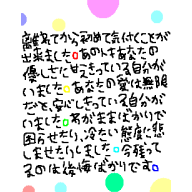 離れてから初めて気付くことが
出来ました。あの人もあなたの
優しさに甘えきっている自分が
いました。あなたの愛は無限
だと、安心しきっている自分が
いました。わがままばかりで
困らせたり、冷たい態度に悲
しませたりしました。今残って
るのは後悔ばかりです。